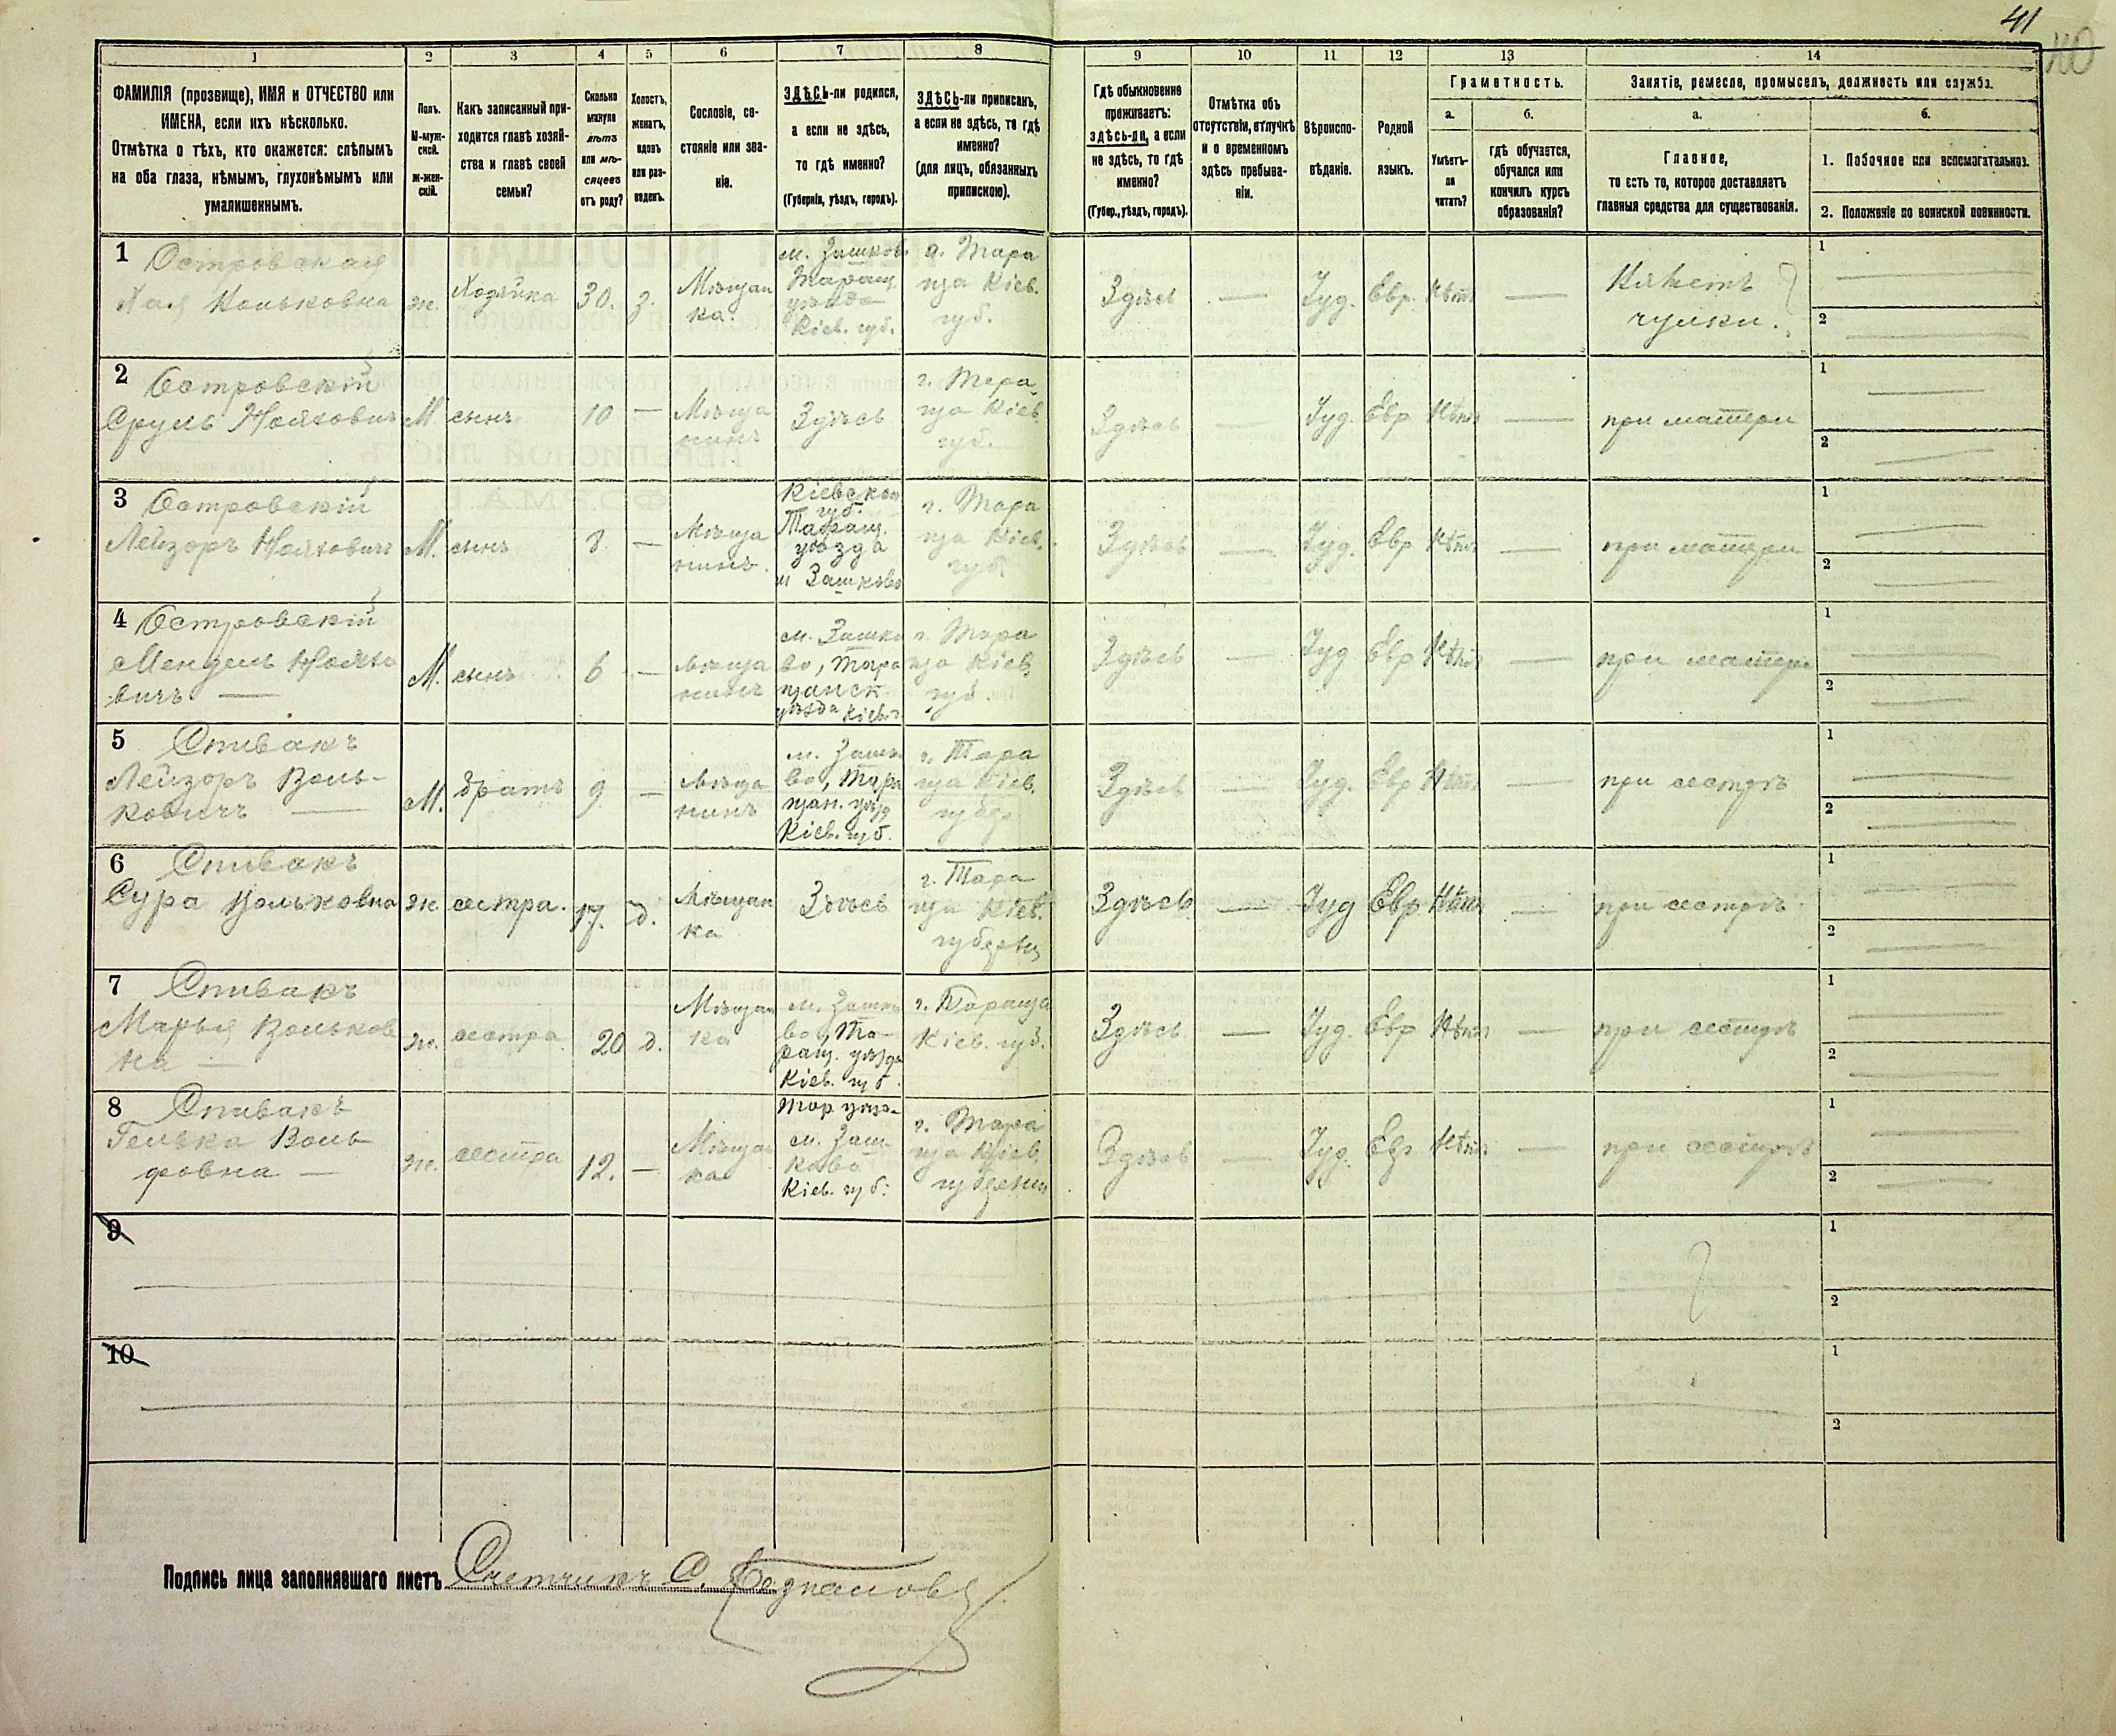 41
40
1 2 3 4 5 6 7 8 9 10 11 12 13 14
ФАМИЛІЯ (прозвище), ИМЯ и ОТЧЕСТВО или
ИМЕНА, если ихъ нѣсколько.
Отмѣтка о тѣхъ, кто окажется: слѣпымъ
на оба глаза, нѣмымъ, глухонѣмымъ или
умалишеннымъ.
Полъ.
М-муж-
ской.
ж-жен-
скій.
Какъ записанный при-
ходится главѣ хозяй-
ства и главѣ своей
семьи?
Сколько
минуло
лѣтъ
или мѣ-
сяцевъ
отъ роду?
Холостъ,
женатъ,
вдовъ
или раз-
веденъ.
Сословіе, со-
стояніе или зва-
ніе.
ЗДѢСЬ-ли родился,
а если не здѣсь,
то гдѣ именно?
(Губернія, уѣздъ, городъ).
ЗДѢСЬ-ли приписанъ,
а если не здѣсь, то гдѣ
именно?
(для лицъ, обязанныхъ
припискою).
Гдѣ обыкновенно
проживаетъ:
здѣсь-ли, а если
не здѣсь, то гдѣ
именно?
(Губер., уѣздъ, городъ).
Отмѣтка объ
отсутствіи, отлучкѣ
и о временномъ
здѣсь пребыва-
ніи.
Вѣроиспо-
вѣданіе.
Родной
языкъ.
Грамотность.
а.
Умѣетъ-
ли
читать?
б.
гдѣ обучается,
обучался или
кончилъ курсъ
образованія?
Занятіе, ремесло, промыселъ, должность или служба.
а.
Главное,
то есть то, которое доставляетъ
главныя средства для существованія.
б.
1. Побочное или вспомогательное.
2. Положеніе по воинской повинности.
1 Островская
Хая Вольковна
ж.
Хозяйка
30.
з.
Мѣщан
ка.
м. Зашков
Таращ.
уѣзда
Кіев. губ.
г. Тара
ща Кіев.
губ.
Здѣсь
—
Іуд.
Евр.
Нѣтъ
—
Вяжетъ
чулки.
1
2
2 Островскій
Сруль Нойхович
М
сынъ
10
—
Мѣща
нинъ
Здѣсь
г. Тара
ща Кіев.
губ.
Здѣсь
—
Іуд.
Евр
Нѣтъ
—
при матери
1
2
3 Островскій
Лейзоръ Нойховичъ
М.
сынъ
8.
—
Мѣща
нинъ.
Кіевской
губ.
Таращ.
уѣзда
м Зашково
г. Тара
ща Кіев.
губ.
Здѣсь
—
Іуд.
Евр
Нѣтъ
—
при матери
1
2
4 Островскій
Мендель Нойхо
вичъ —
М.
сынъ
6
—
Мѣща
нинъ
м. Зашко
во, Тара
щанск.
уѣзда Кіев. г.
г. Тара
ща Кіев.
губ.
Здѣсь
—
Іуд
Евр
Нѣтъ
—
при матери
1
2
5 Спивакъ
Лейзоръ Воль-
ковичъ —
М.
братъ
9
—
Мѣща
нинъ
м. Зашко
во, Тара
щан. уѣзд
Кіев. губ.
г. Тара
ща Кіев.
Здѣсь
—
Іуд.
Евр
Нѣтъ
—
при сестрѣ
1
2
6 Спивакъ
Сура Вольковна
ж
сестра.
17.
д.
Мѣщан
ка
Здѣсь
г. Тара
ща Кіев.
Здѣсь
—
Іуд
Евр
Нѣтъ
—
при сестрѣ
1
2
7 Спивакъ
Марья Вольков
на —
ж.
сестра
20
д.
Мѣщан
ка
м. Зашко
во, Та-
ращ. уѣзда
Кіев. губ.
г. Тараща
Кіев. губ.
Здѣсь
—
Іуд.
Евр
Нѣтъ
—
при сестрѣ
1
2
8 Спивакъ
Гелька Воль
фовна —
ж.
сестра
12.
—
Мѣщан
ка
Тар уѣз-
м. Заш
ково
Кіев. губ.
г. Тара
ща Кіев.
Здѣсь
—
Іуд.
Евр
Нѣтъ
—
при сестрѣ
1
2
9
1
2
10
1
2
Подпись лица заполнявшаго листъ Счетчикъ С.